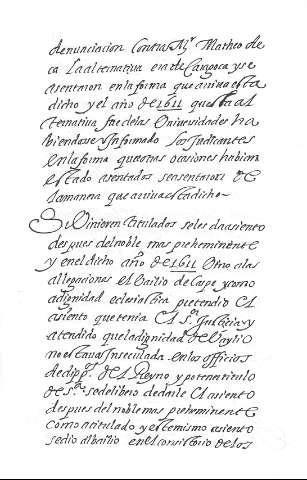 denunciacion Contra Mr Matheo de
ca La alternatiua era de Çaragoca y se
asentaron en la forma que arriua esta
dicho y el año de 1611 que esta al
ternatiua fue de las Uniuersidades ha
biendose Informado los Judicantes
en la forma que otras ocasiones habian
estado asentados se asentaron de
la manera que arriua esta dicho~
Si Vinieren titulados seles da asiento
despues del noble mas preheminente
y en el dicho año de 1611 Otro a las
allegaciones el Bailio de Caspe y como
a dignidad eclesiastica pretendio el
asiento que tenia el sr Justicia y
atendido que la dignidad de Baylio
no estaua Inseculada en los officios
de dippdo del Reyno y por no titulo
de sr se delibero de darle el asiento
despues del noble mas preheminente
como a titulado y este mismo asiento
se dio al bailio en el consistorio de los